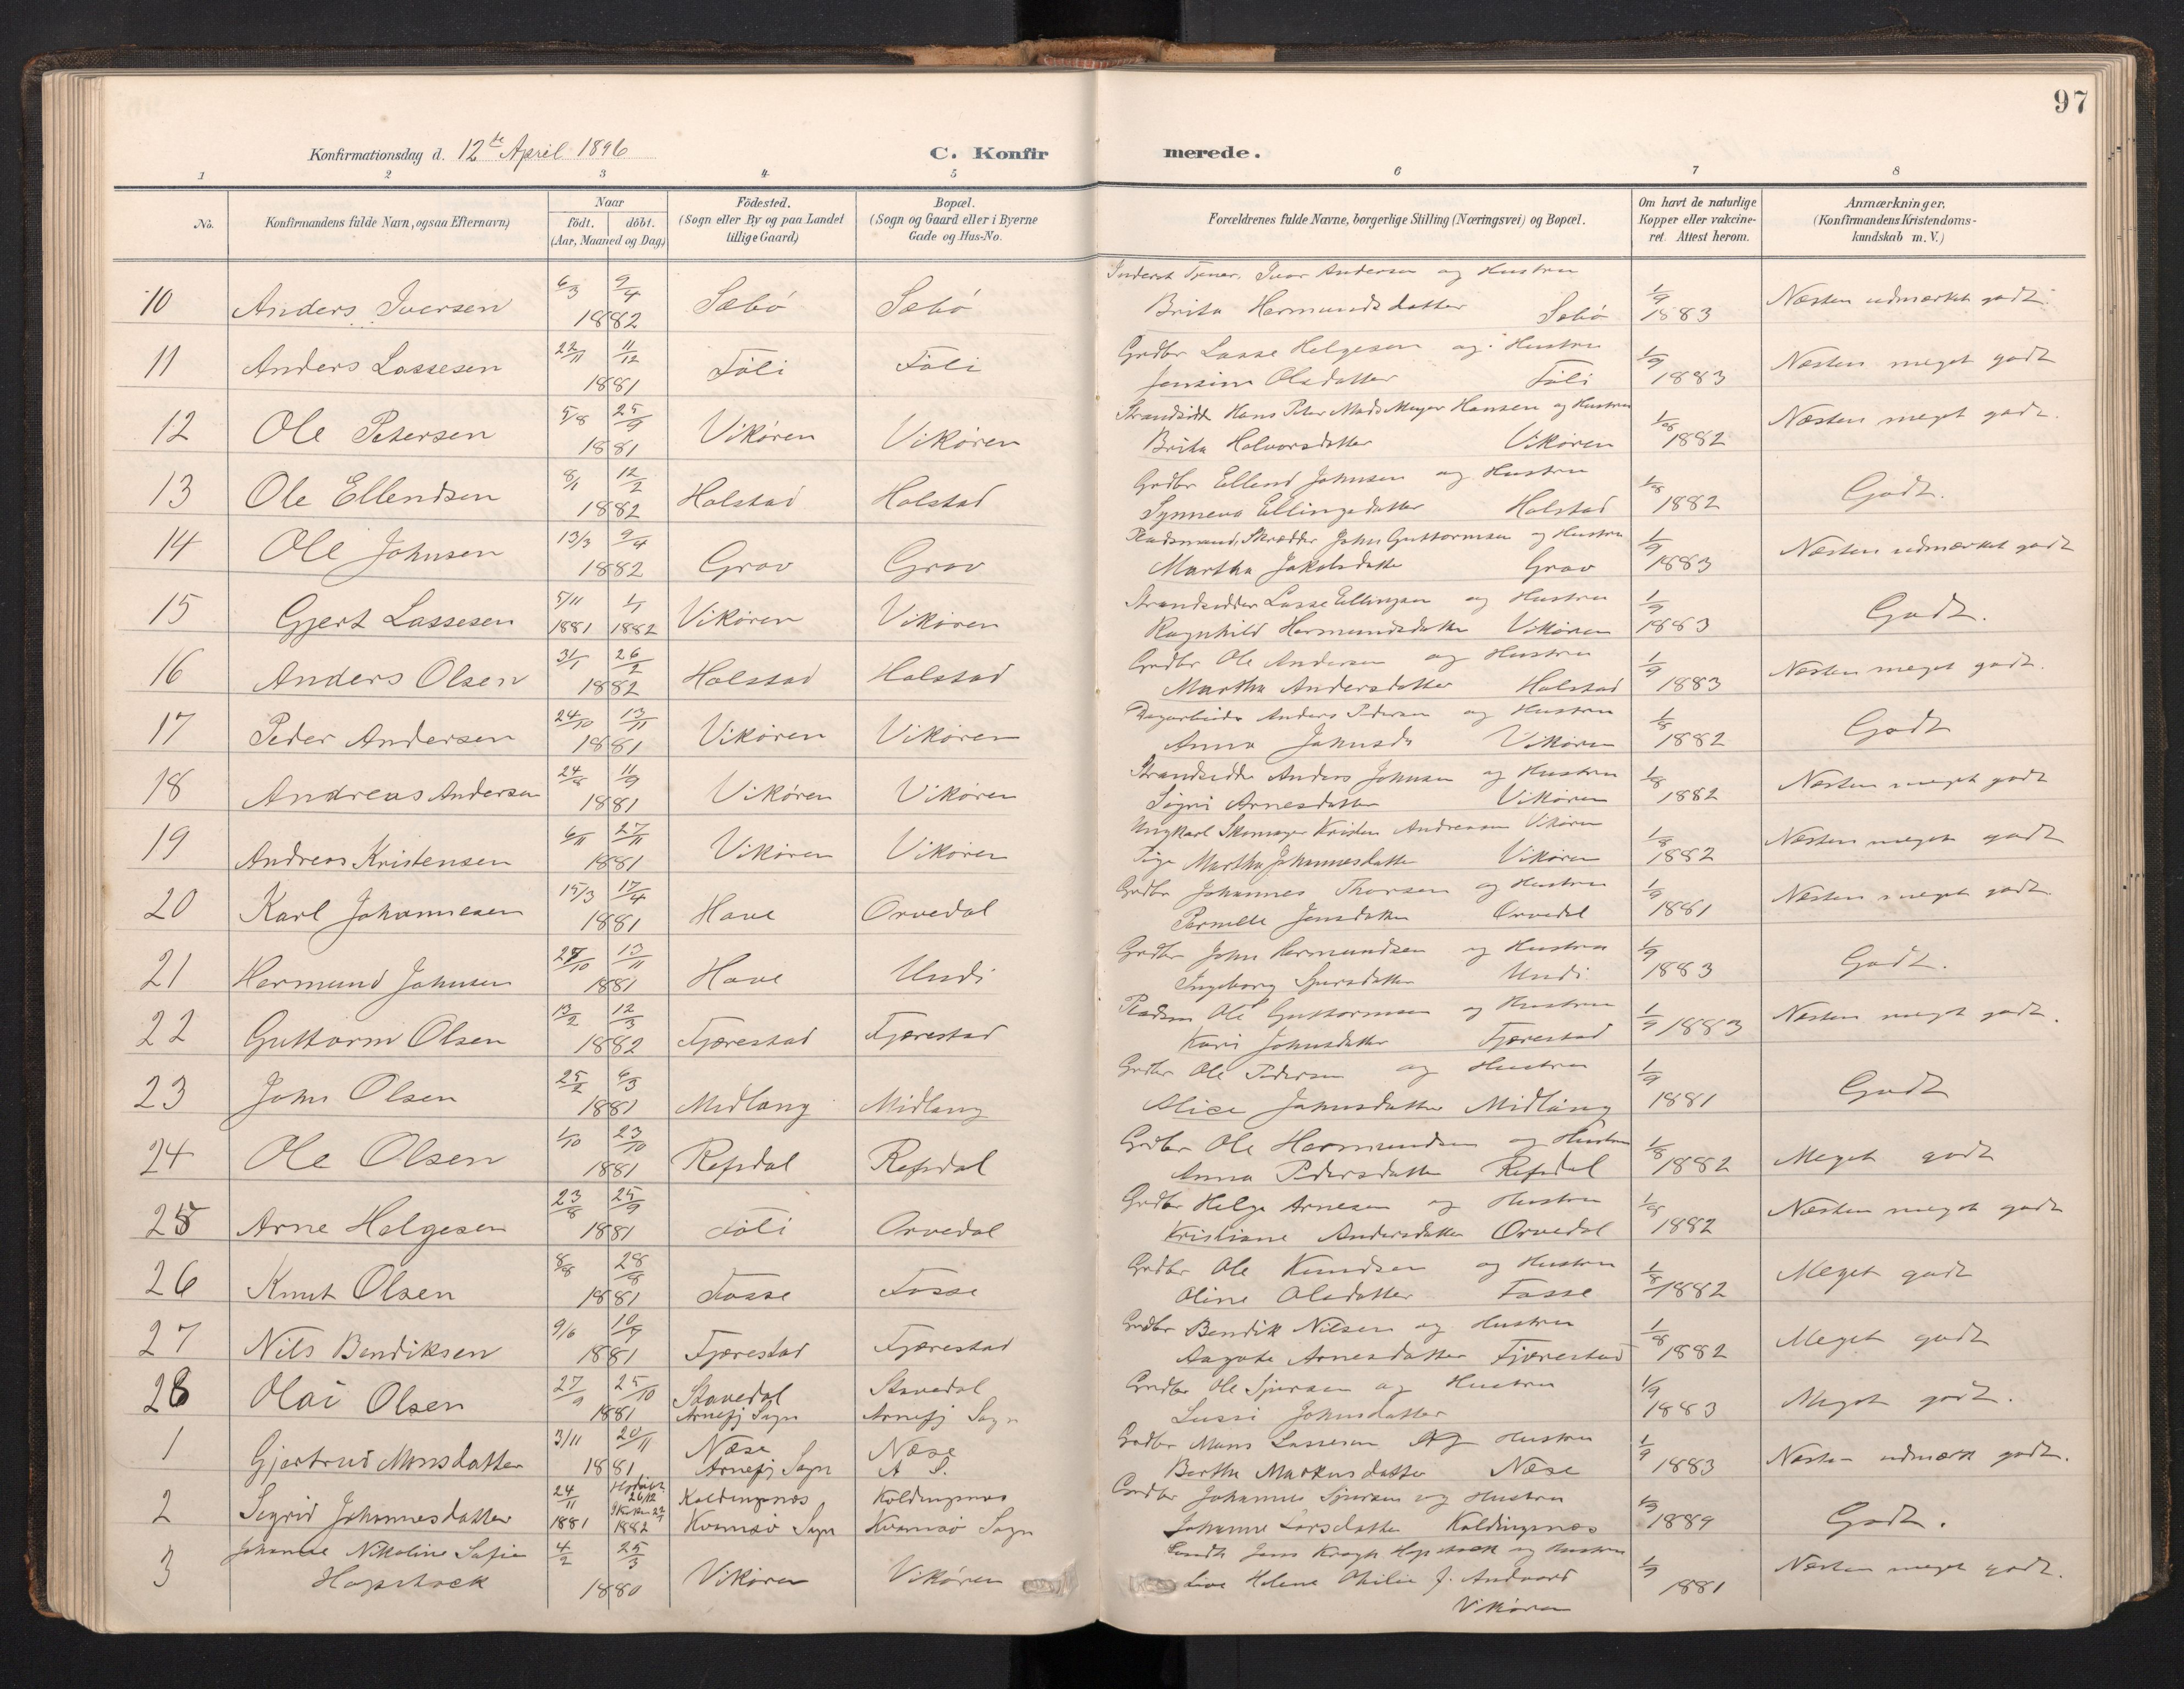 97
Konfirmationsdag d. 12te April 1896
C. Konfirmerede.
1 2 3 4 5 6 7 8
No.
Konfirmandens fulde Navn, ogsaa Efternavn)
Naar
födt. döbt.
(Aar, Maaned og Dag)
Födested.
(Sogn eller By og paa Landet
tillige Gaard)
Bopæl.
(Sogn og Gaard eller i Byerne
Gade og Hus-No.
Forældrenes fulde Navne, borgerlige Stilling (Næringsvei) og Bopæl.
Om havt de naturlige
Kopper eller vakcine-
ret. Attest herom.
Anmærkninger.
(Konfirmandens Kristendoms-
kundskab m. V.)
10 Anders Iversen 6/3 9/4 1882 Sæbö Sæbö Ivar Andersen og Hustru
Brita Hermundsdatter Sæbö 1/9 1883 Næsten udmærket godt
11 Anders Lassesen 22/11 11/12 1881 Föli Föli Grdbr Lasse Helgesen og Hustru
Jensine Olsdatter Föli 1/9 1883 Næsten meget godt
12 Ole Petersen 5/8 25/9 1881 Vikören Vikören Strandsidd Hans Peter Mads Meyer Hansen og Hustru
Brita Halvorsdatter Vikören 1/8 1882 Næsten meget godt.
13 Ole Ellendsen 8/1 12/2 1882 Holstad Holstad Grdbr Ellend Johnsen og Hustru
Synneva Ellingsdatter Holstad 1/8 1882 Godt.
14 Ole Johnsen 13/3 9/4 1882 Grov Grov Pladsmand, Skrædder John Guttormsen og Hustru
Martha Jakobsdatter Grov 1/9 1883 Næsten udmærket godt
15 Gjert Lassesen 5/11 1881 1/1 1882 Vikören Vikören Strandsidder Lasse Ellingsen og Hustru
Ragnhild Hermundsdatter Vikören 1/9 1883 Godt.
16 Anders Olsen 31/1 26/2 1882 Holstad Holstad Grdbr Ole Andersen og Hustru
Martha Andersdatter Holstad 1/9 1883 Næsten meget godt.
17 Peder Andersen 24/10 13/11 1881 Vikören Vikören Dagarbeider Anders Pedersen og Hustru
Anna Johnsdr Vikören 1/8 1882 Godt
18 Andreas Andersen 24/8 11/9 1881 Vikören Vikören Strandsidder Anders Johnsen og Hustru
Sigri Arnesdatter Vikören 1/8 1882 Næsten meget godt
19 Andreas Kristensen 6/11 27/11 1881 Vikören Vikören Ungkarl Skomager Kristen Andreasen Vikören
Pige Martha Johannesdatter Vikören 1/8 1882 Næsten meget godt
20 Karl Johannesen 15/3 17/4 1881 Hove Orvedal Grdbr Johannes Thorsen og Hustru
Pernille Jensdatter Orvedal 1/9 1881 Næsten meget godt.
21 Hermund Johnsen 13/11 1881 Hove Undi Grdbr John Hermundsen og Hustru
Ingeborg Sjursdatter Undi 1/9 1883 Godt.
22 Guttorm Olsen 13/2 12/3 1882 Fjærestad Fjærestad Pladsm Ole Guttormsen og Hustru
Kari Johnsdatter Fjærestad 1/9 1883 Næsten meget godt.
23 John Olsen 25/2 6/3 1881 Midlang Midlang Grdbr Ole Pedersen og Hustru
Alice Johnsdatter Midlang 1/9 1881 Godt
24 Ole Olsen 1/10 23/10 1881 Refsdal Refsdal Grdbr Ole Hermundsen og Hustru
Anna Pedersdatter Refsdal 1/8 1882 Meget godt
25 Arne Helgesen 23/8 25/9 1881 Föli Orvedal Grdbr Helge Arnesen og Hustru
Kristiane Andersdatter Orvedal 1/8 1882 Næsten meget godt
26 Knut Olsen 8/8 28/8 1881 Fosse Fosse Grdbr Ole Knudsen og Hustru
Oline Olsdatter Fosse 1/8 1882 Meget godt
27 Nils Bendiksen 9/6 10/7 1881 Fjærestad Fjærestad Grdbr Bendik Nilsen og Hustru
Aagate Arnesdatter Fjærestad 1/8 1882 Meget godt
28 Olai Olsen 27/9 25/10 1881 Stavedal
Arnefj Sogn Stavedal
Arnefj Sogn Grdbr Ole Sjursen og Hustru
Lussi Johnsdatter 1/9 1883 Meget godt.
1 Gjertrud Monsdatter 3/11 20/11 1881 Næse
Arnefj Sogn Næse
A S. Grdbr Mons Lassesen og Hustru
Berthe Markusdatter Næse 1/9 1883 Næsten udmærk godt.
2 Sigrid Johannesdatter 24/11 1881 Hjdöbt 26/12 1882 Koldingnæs
Kvamsö Sogn Koldingnæs
Kvamsö Sogn Grdbr Johannes Sjursen og Hustru
Johanne Larsdatter Koldingnæs 1889 Godt.
3 Johanne Nikoline Sofie
Hopstock 4/2 25/3 1880 Vikören Vikören Jens Kragh Hopstock og Hustru
Live Helene Othilie f. Andvord
Vikören 1881 Næsten meget godt.